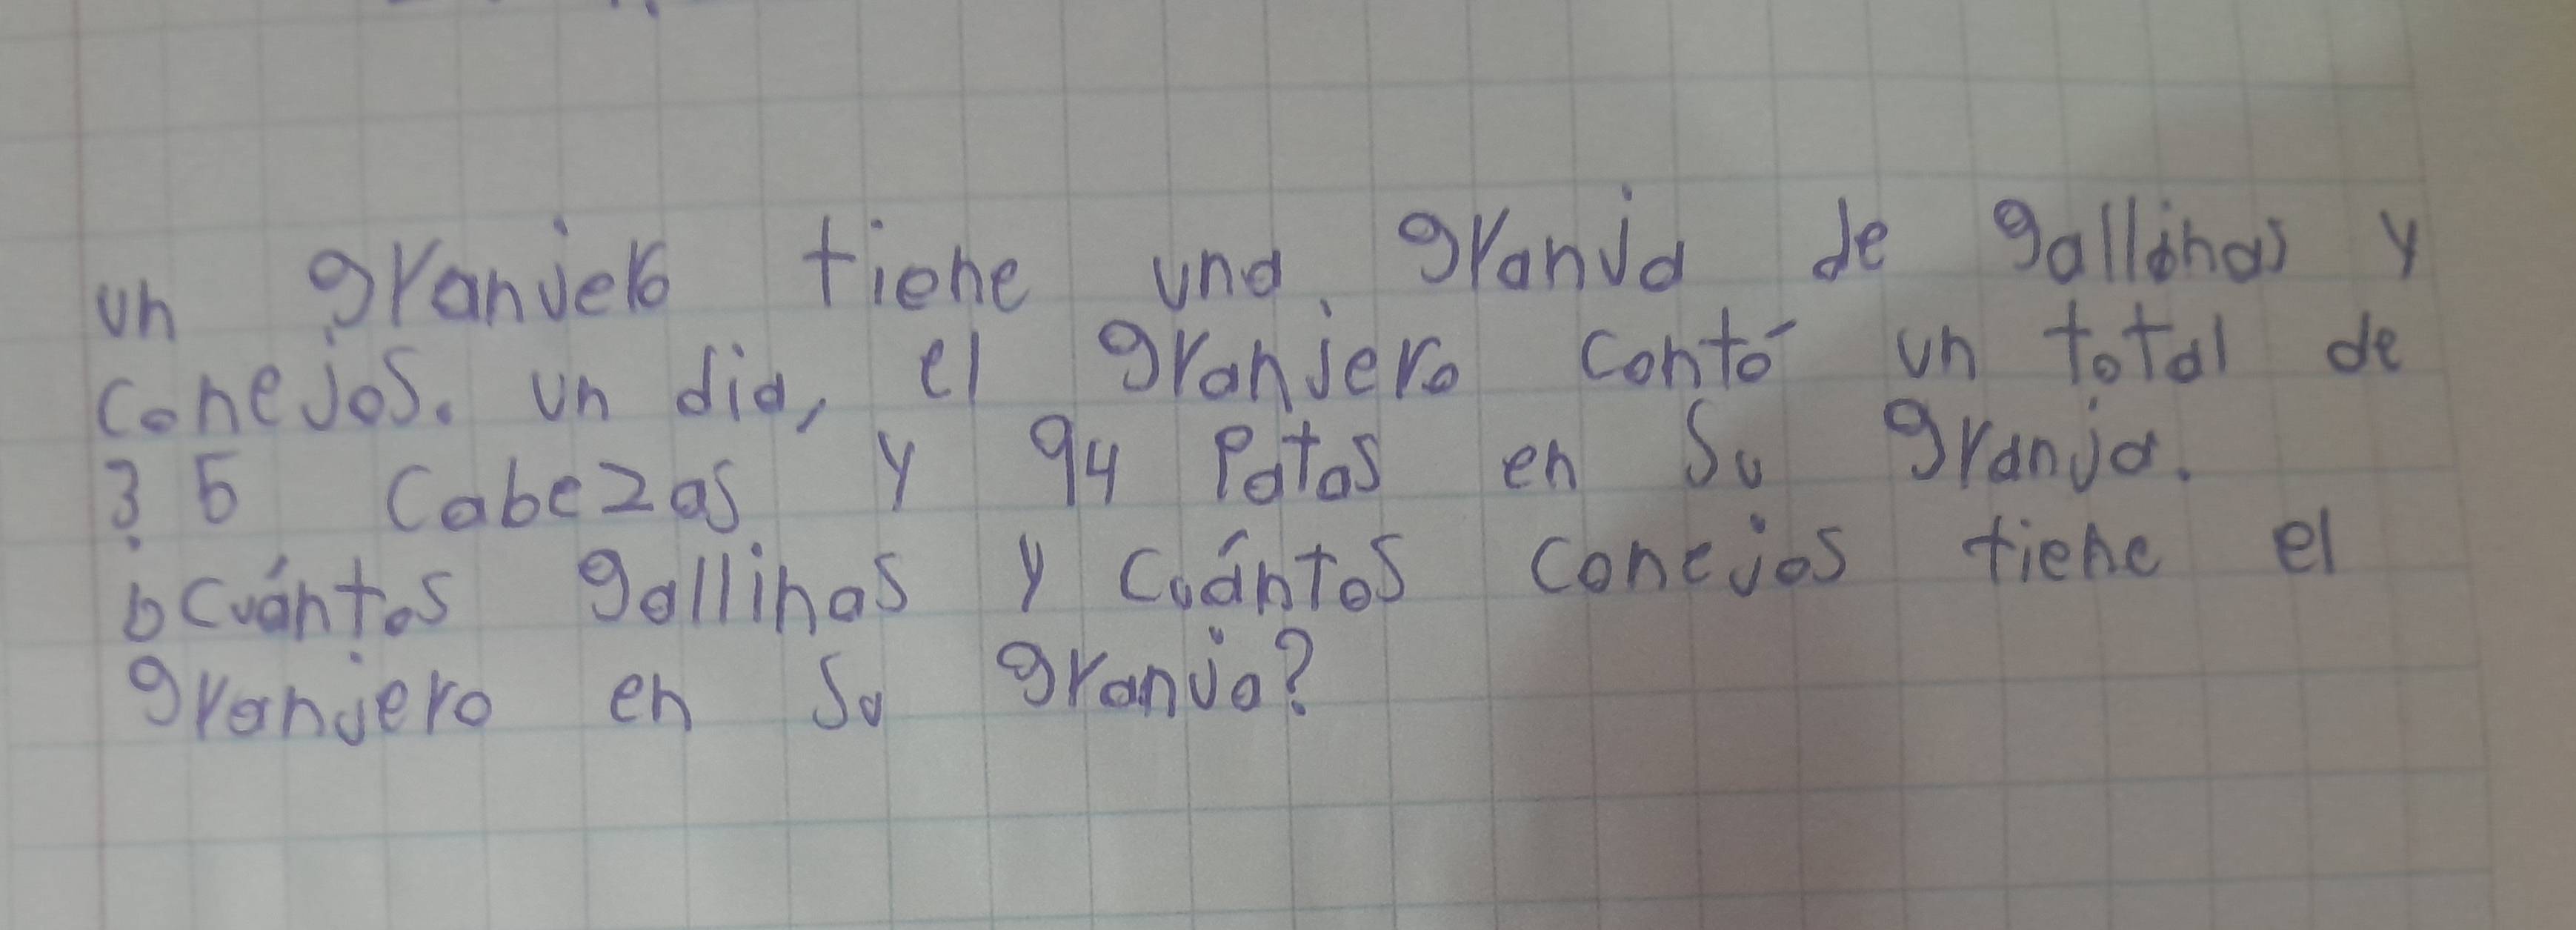 un granjero tiene una granja de gallinas y
conejos. un dia, el granjero contó un total de
35 cabezas y 94 Patas en su granja.
¿cuántos gallinas y cuántos conejos tiene el
granjero en su granja?